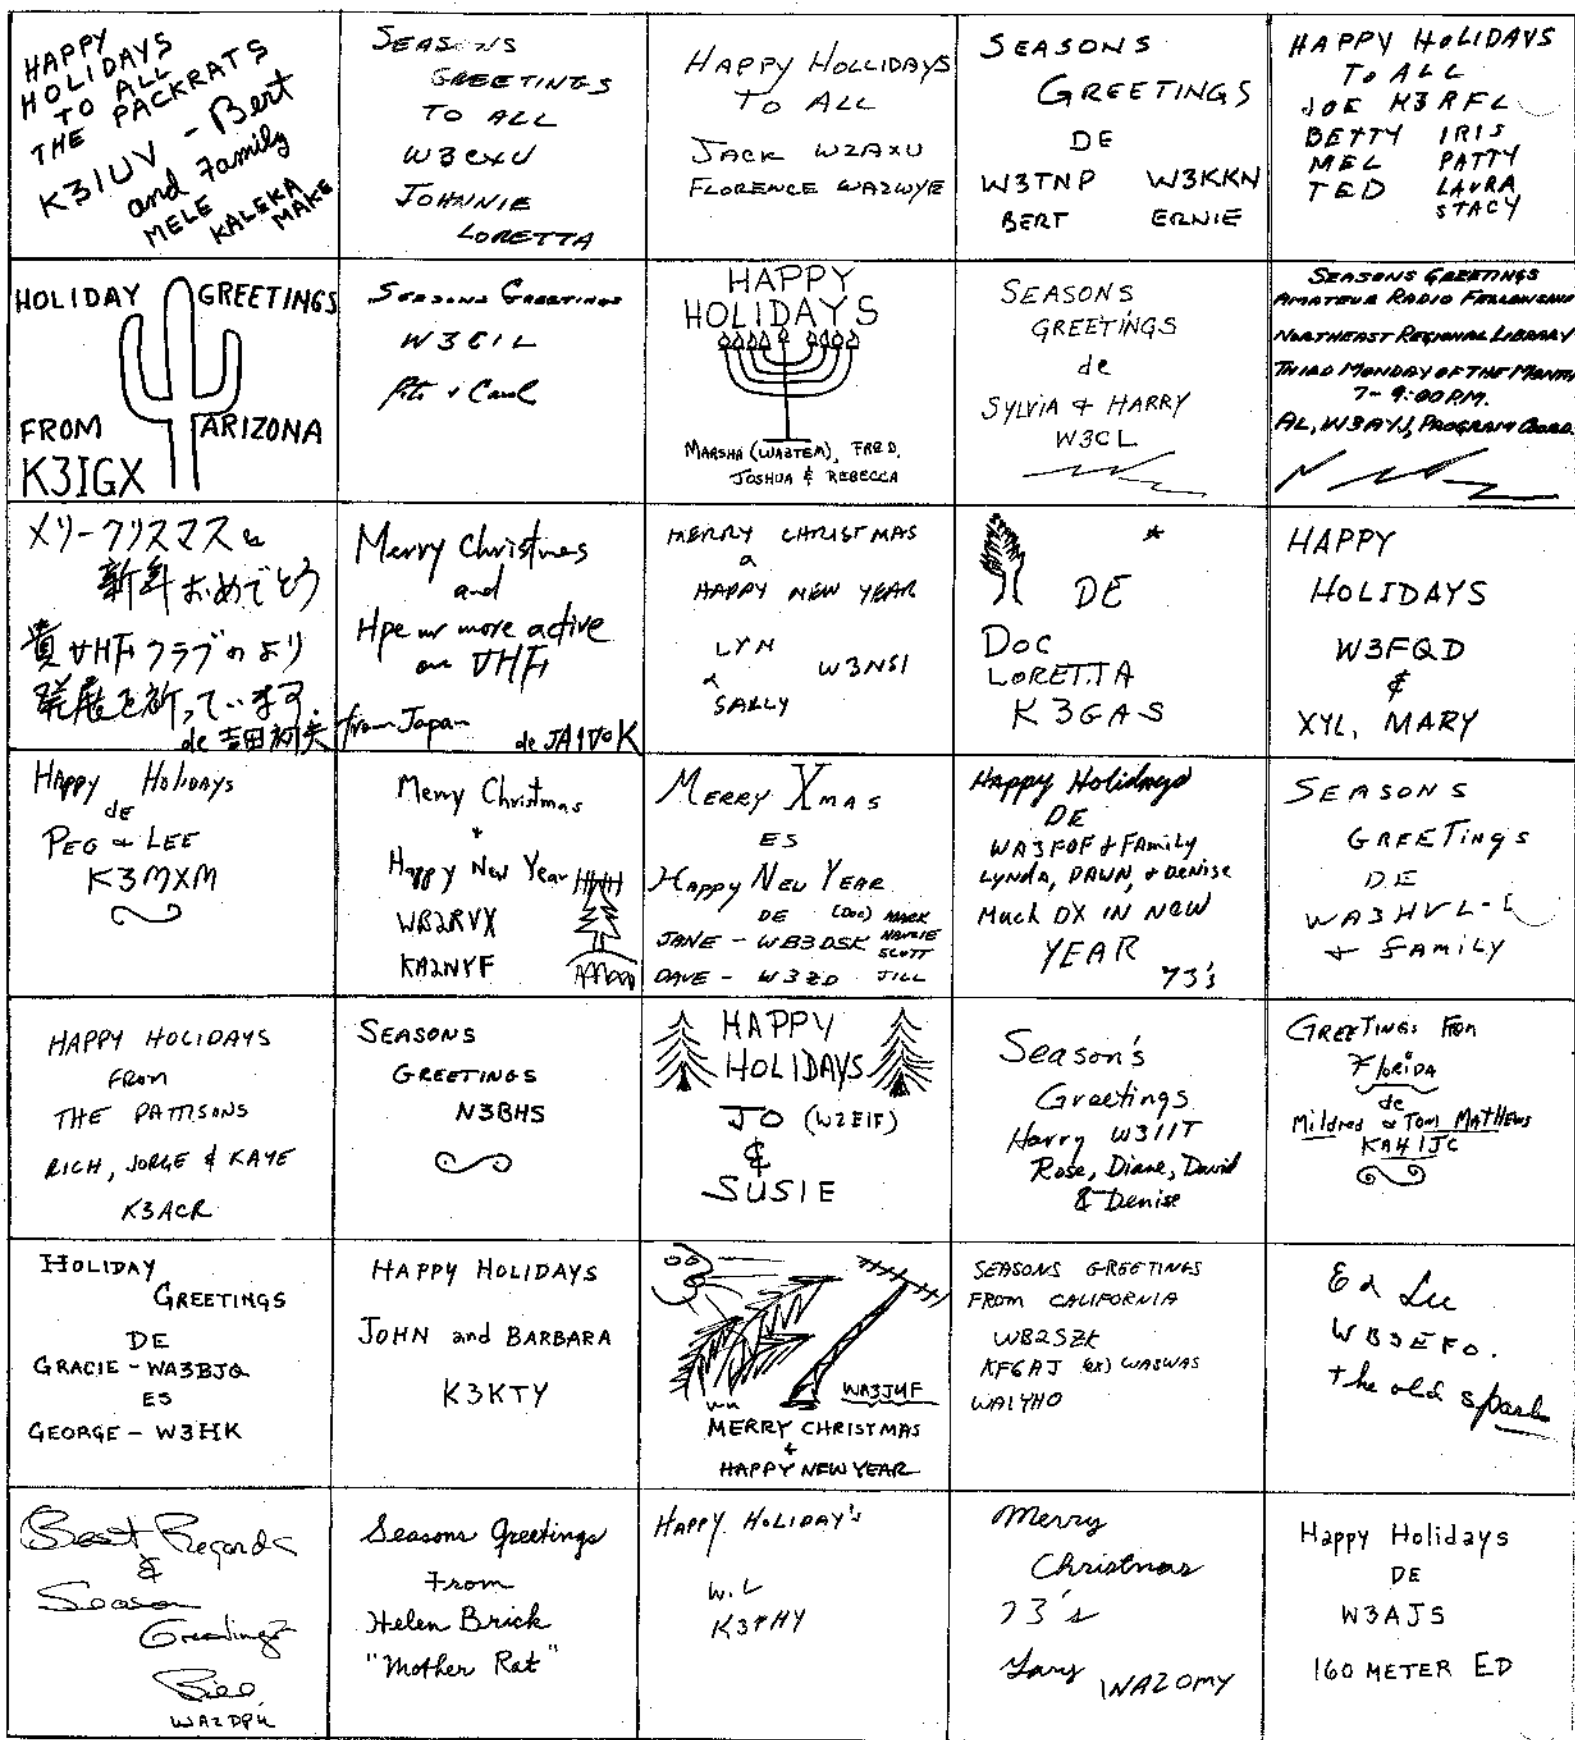 HAPPY
HOLIDAYS
TO ALL
THE PACKRATS
K3IUV - Bert
and Family
MELE
KALEKA
MAKE
SEASONS
GREETINGS
TO ALL
W3CXU
JOHNNIE
LORETTA
HAPPY HOLLIDAYS
TO ALL
JACK W2AXU
FLORENCE WA2WYE
SEASONS
GREETINGS
DE
W3TNP W3KKN
BERT ERNIE
HAPPY HOLIDAYS
TO ALL
JOE K3RFL
BETTY IRIS
MEL PATTY
TED LAURA
STACY
HOLIDAY GREETINGS
FROM ARIZONA
K3IGX
SEASONS GREETINGS
W3EIL
Pete + Carol
HAPPY
HOLIDAYS
MARSHA (WA3TEM), FRED,
JOSHUA & REBECCA
SEASONS
GREETINGS
de
SYLVIA + HARRY
W3CL
SEASONS GREETINGS
AMATEUR RADIO FELLOWSHIP
NORTHEAST REGIONAL LIBRARY
THIRD MONDAY OF THE MONTH
7-9:00 P.M.
AL, W3AYJ, PROGRAM COORD.
メリークリスマスと
新年おめでとう
貴VHFクラブのより
発展を祈っています.
de 吉田
Merry Christmas
and
Hpe ur more active
on VHF
from Japan de JA1VOK
MERRY CHRISTMAS
&
HAPPY NEW YEAR
LYN W3NSI
&
SALLY
DE
DOC
LORETTA
K3GAS
HAPPY
HOLIDAYS
W3FQD
&
XYL, MARY
HAPPY HOLIDAYS
de
PEG + LEE
K3MXM
Merry Christmas
+
Happy New Year
WB2RVX
KA2NYF
MERRY XMAS
ES
HAPPY NEW YEAR
DE (DOC) MARK
JANE - WB3DSK NANCIE
SCOTT
DAVE - W3ZD JILL
Happy Holidays
DE
WA3FOF & FAMILY
LYNDA, DAWN, & DENISE
Much DX IN NEW
YEAR
73's
SEASONS
GREETINGS
DE
WA3HVL
+ FAMILY
HAPPY HOLIDAYS
FROM
THE PATTISONS
RICH, JORGE & KAYE
K3ACR
SEASONS
GREETINGS
N3BHS
HAPPY
HOLIDAYS
JO (W2EIF)
&
SUSIE
Season's
Greetings
Harry W3IIT
Rose, Diane, David
& Denise
GREETINGS FROM
FLORIDA
de
Mildred & Tom MATHEWS
KA4IJC
HOLIDAY
GREETINGS
DE
GRACIE - WA3BJQ
ES
GEORGE - W3HK
HAPPY HOLIDAYS
JOHN and BARBARA
K3KTY
WA3JUF
MERRY CHRISTMAS
+
HAPPY NEW YEAR
SEASONS GREETINGS
FROM CALIFORNIA
WB2SZK
KF6AJ (ex) WA3WAS
WA1YHO
Ed Lee
WB3EFO.
the old spark
Best Regards
&
Season
Greetings
Bill
WA2DPK
Seasons Greetings
From
Helen Brick
"Mother Rat"
HAPPY HOLIDAY'S
W.L
K3PHY
Merry
Christmas
73's
Gary WA2OMY
Happy Holidays
DE
W3AJS
160 METER ED